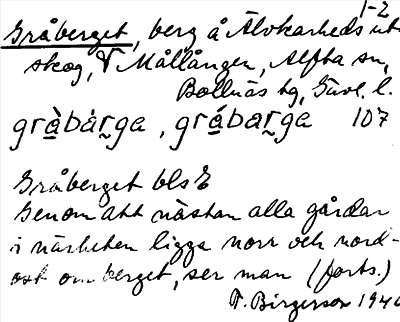 1-2
Gråberget, berg å Älvkarheds ut-
skog, V Mållången, Alfta sn,
Bollnäs tg, Gävl. l.
gràbár̰ga, grábar̰ga 107
Gråberget bls E
Genom att nästan alla gårdar
i närheten ligga norr och nord-
ost om berget, ser man (forts.)
F. Birgerson 1940